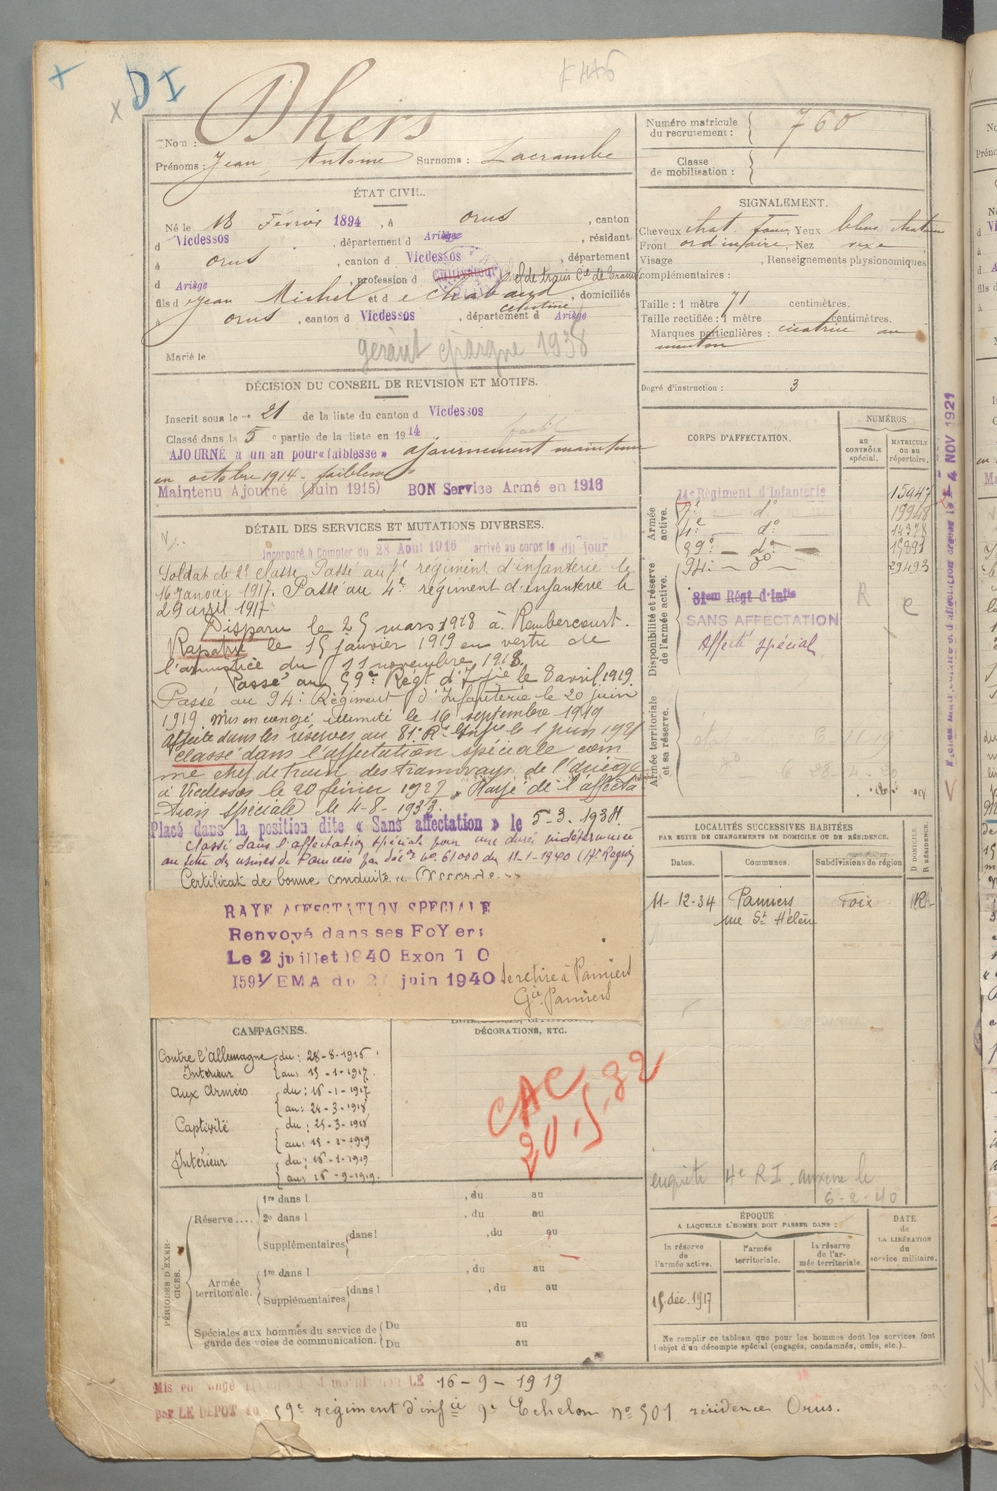 DI
Nom : Dhers
Prénoms : Jean Antoine Surnoms : Lacrambe
Numéro matricule du recrutement : 760
Classe de mobilisation :
ÉTAT CIVIL.
Né le 18 Février 1894, à Orus, canton
d Vicdessos, département d Ariège, résidant
à Orus, canton d Vicdessos, département
d Ariège, profession d Cultivateur
fils d Jean Michel et d e Chabaud Célestine, domiciliés
à Orus, canton d Vicdessos, département d Ariège
Marié le
gérant épargne 1938
SIGNALEMENT.
Cheveux chat. Yeux bleus
Front ordinaire, Nez
Visage , Renseignements physionomiques
complémentaires :
Taille : 1 mètre 71 centimètres.
Taille rectifiée : 1 mètre centimètres.
Marques particulières : cicatrice au
menton
Degré d'instruction : 3
DÉCISION DU CONSEIL DE REVISION ET MOTIFS.
Inscrit sous le n° 21 de la liste du canton d Vicdessos
Classé dans la 5 e partie de la liste en 1914
AJOURNÉ à un an pour «faiblesse» ajournement maintenu
en octobre 1914 - faiblesse
Maintenu Ajourné (Juin 1915) BON Service Armé en 1916
DÉTAIL DES SERVICES ET MUTATIONS DIVERSES.
Incorporé à Compter du 28 Aout 1916 arrivé au corps le dit jour
Soldat de 2e classe. Passé au 7e régiment d'infanterie le
16 Janvier 1917. Passé au 4e régiment d'infanterie le
29 avril 1917
Disparu le 25 mars 1918 à Rembercourt.
Rapatrié le 15 janvier 1919 en vertu de
l'armistice du 11 novembre 1918.
Passé au 59e Régt d'Infie le 8 avril 1919.
Passé au 94e Régiment d'Infanterie le 20 juin
1919. Mis en congé illimité le 16 septembre 1919
Affecté dans les réserves au 81e R. Infie le 1 juin 1921
Classé dans l'affectation spéciale com
me chef de train des tramways de l'Ariège
à Vicdessos le 20 février 1927. Rayé de l'affecta
tion spéciale le 4-8-1933.
Placé dans la position dite « Sans affectation » le 5-3-1938.
Classé dans l'affectation spéciale pour une durée indéterminée
au titre des usines de Pamiers par déc. n° 61000 du 11-1-1940 (17e Région
Certificat de bonne conduite « Accordé »
RAYE AFFECTATION SPECIALE
Renvoyé dans ses FoYers
Le 2 juillet 1940
EMA du juin 1940
se retire à Pamiers
Gie Pamiers
CORPS D'AFFECTATION.
NUMÉROS
AU CONTRÔLE spécial.
MATRICULE OU AU répertoire.
Armée active.
14e Régiment d'Infanterie 15947
7e d° 19968
4e d° 14378
59e d° 15891
94e d° 29493
Disponibilité et réserve de l'armée active.
81eme Régt d'Infie
SANS AFFECTATION
Affecté spécial
R
Armée territoriale et sa réserve.
4 NOV 1921
LOCALITÉS SUCCESSIVES HABITÉES
PAR SUITE DE CHANGEMENTS DE DOMICILE OU DE RÉSIDENCE.
Dates. Communes. Subdivisions de région
D DOMICILE. R RÉSIDENCE.
11-12-34 Pamiers Foix
rue St Hélène
enquête 4e R I. Auxerre le
6-2-40
CAMPAGNES.
DÉCORATIONS, ETC.
Contre l'Allemagne du : 28-8-1916
Intérieur au : 15-1-1917.
Aux Armées du : 16-1-1917
au : 24-3-1918
Captivité du : 25-3-1918
au : 15-1-1919
Intérieur du : 16-1-1919
au : 16-9-1919.
CAC
20.5.32
PÉRIODES D'EXERCICES.
Réserve.... 1re dans l , du au
2e dans l , du au
Supplémentaires dans l , du au
Armée territoriale. 1re dans l , du au
Supplémentaires dans l , du au
Spéciales aux hommes du service de garde des voies de communication. Du au
Du au
ÉPOQUE
A LAQUELLE L'HOMME DOIT PASSER DANS :
la réserve de l'armée active.
l'armée territoriale.
la réserve de l'armée territoriale.
DATE de LA LIBÉRATION du service militaire.
15 déc. 1917
Ne remplir ce tableau que pour les hommes dont les services font
l'objet d'un décompte spécial (engagés, condamnés, omis, etc.).
Mis en congé LE 16-9-1919
par LE DEPOT du 59e régiment d'infie 9e Echelon n° 501 résidence Orus.